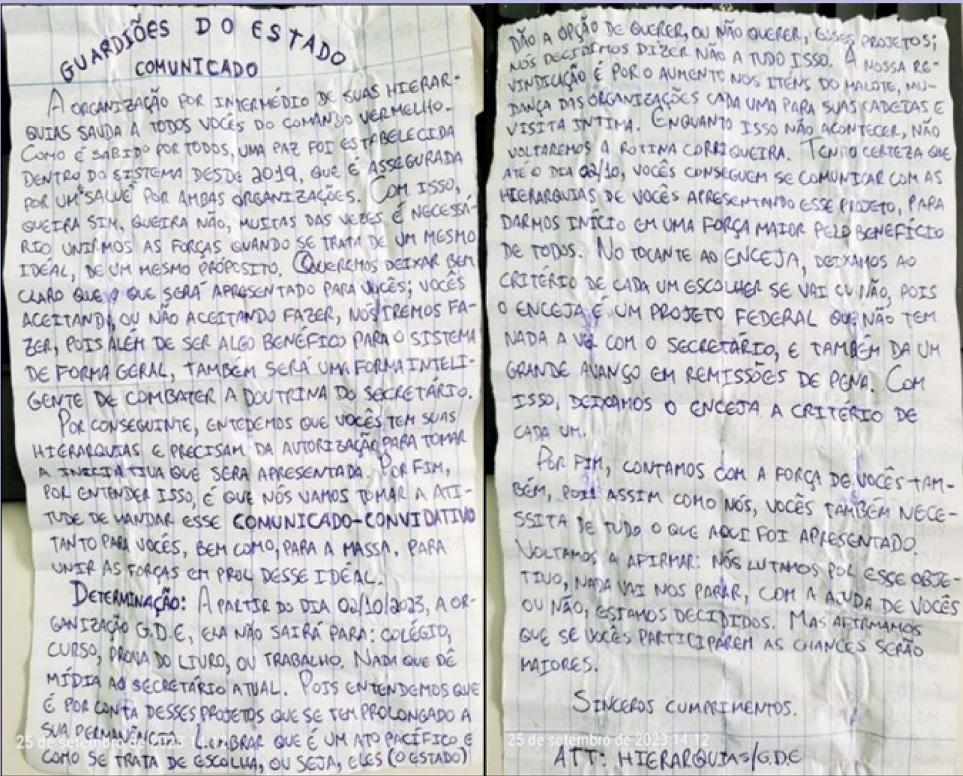 GUARDIÕES DO ESTADO
COMUNICADO
A ORGANIZAÇÃO POR INTERMÉDIO DE SUAS HIERAR-
QUIAS SAUDA A TODOS VOCÊS DO COMANDO VERMELHO.
COMO É SABIDO POR TODOS, UMA PAZ FOI ESTABELECIDA
DENTRO DO SISTEMA DESDE 2019, QUE É ASSEGURADA
POR UM "SALVE" POR AMBAS ORGANIZAÇÕES. COM ISSO,
QUEIRA SIM, QUEIRA NÃO, MUITAS DAS VEZES É NECESSÁ-
RIO UNIRMOS AS FORÇAS QUANDO SE TRATA DE UM MESMO
IDEAL, DE UM MESMO PROPÓSITO. QUEREMOS DEIXAR BEM
CLARO QUE O QUE SERÁ APRESENTADO PARA VOCÊS; VOCÊS
ACEITANDO, OU NÃO ACEITANDO FAZER, NÓS IREMOS FA-
ZER, POIS ALÉM DE SER ALGO BENÉFICO PARA O SISTEMA
DE FORMA GERAL, TAMBÉM SERÁ UMA FORMA INTELI-
GENTE DE COMBATER A DOUTRINA DO SECRETÁRIO.
POR CONSEGUINTE, ENTEDEMOS QUE VOCÊS TEM SUAS
HIERARQUIAS E PRECISAM DA AUTORIZAÇÃO PARA TOMAR
A INICIATIVA QUE SERA APRESENTADA. POR FIM,
POR ENTENDER ISSO, É QUE NÓS VAMOS TOMAR A ATI-
TUDE DE MANDAR ESSE COMUNICADO-CONVIDATIVO
TANTO PARA VOCÊS, BEM COMO, PARA A MASSA. PARA
UNIR AS FORÇAS EM PROL DESSE IDEAL.
DETERMINAÇÃO: A PARTIR DO DIA 02/10/2023, A OR-
GANIZAÇÃO G.D.E, ELA NÃO SAIRÁ PARA: COLÉGIO,
CURSO, PROVA DO LIVRO, OU TRABALHO. NADA QUE DÊ
MÍDIA AO SECRETÁRIO ATUAL. POIS ENTENDEMOS QUE
É POR CONTA DESSES PROJETOS QUE SE TEM PROLONGADO A
SUA PERMANÊNCIA. LEMBRAR QUE É UM ATO PACÍFICO E
COMO SE TRATA DE ESCOLHA, OU SEJA, ELES (O ESTADO)
25 de setembro de 2023 14:12
DÃO A OPÇÃO DE QUERER, OU NÃO QUERER, ESSES PROJETOS;
NÓS DECIDIMOS DIZER NÃO A TUDO ISSO. A NOSSA RE-
VINDICAÇÃO É POR O AUMENTO NOS ITENS DO MALOTE, MU-
DANÇA DAS ORGANIZAÇÕES CADA UMA PARA SUAS CADEIAS E
VISITA INTIMA. ENQUANTO ISSO NÃO ACONTECER, NÃO
VOLTAREMOS A ROTINA CORRIQUEIRA. TENHO CERTEZA QUE
ATÉ O DIA 02/10, VOCÊS CONSEGUEM SE COMUNICAR COM AS
HIERARQUIAS DE VOCÊS APRESENTANDO ESSE PROJETO, PARA
DARMOS INÍCIO EM UMA FORÇA MAIOR PELO BENEFÍCIO
DE TODOS. NO TOCANTE AO ENCEJA, DEIXAMOS AO
CRITÉRIO DE CADA UM ESCOLHER SE VAI OU NÃO, POIS
O ENCEJA É UM PROJETO FEDERAL QUE NÃO TEM
NADA A VER COM O SECRETÁRIO, E TAMBÉM DA UM
GRANDE AVANÇO EM REMISSÕES DE PENA. COM
ISSO, DEIXAMOS O ENCEJA A CRITÉRIO DE
CADA UM.
POR FIM, CONTAMOS COM A FORÇA DE VOCÊS TAM-
BÉM, POIS ASSIM COMO NÓS, VOCÊS TAMBÉM NECE-
SSITA DE TUDO O QUE AQUI FOI APRESENTADO.
VOLTAMOS A AFIRMAR: NÓS LUTAMOS POR ESSE OBJE-
TIVO, NADA VAI NOS PARAR, COM A AJUDA DE VOCÊS
OU NÃO, ESTAMOS DECIDIDOS. MAS AFIRMAMOS
QUE SE VOCÊS PARTICIPAREM AS CHANCES SERÃO
MAIORES.
SINCEROS CUMPRIMENTOS.
25 de setembro de 2023 14:12
ATT: HIERARQUIAS/G.D.E